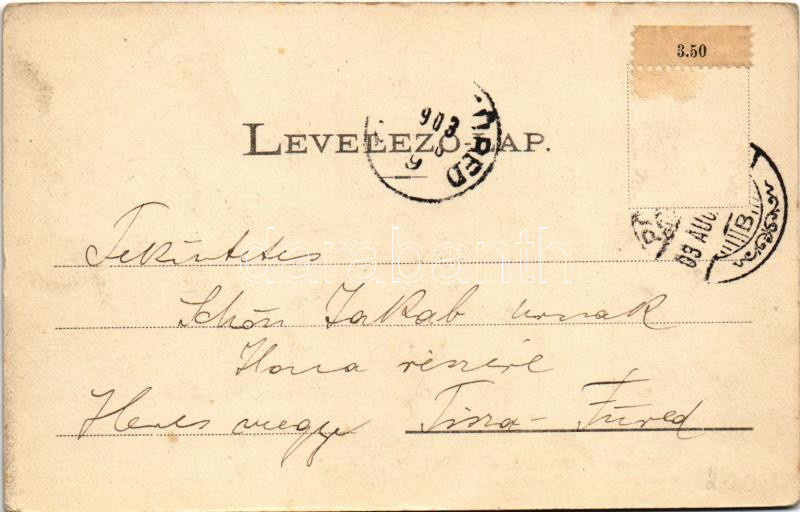 3.50
LEVELEZŐ-LAP.
903
8
9
RED
03 AUG
B
Tekintetes
Schön Jakab urnak
Ilona részére
Heves megye Tisza-Füred
darabanth